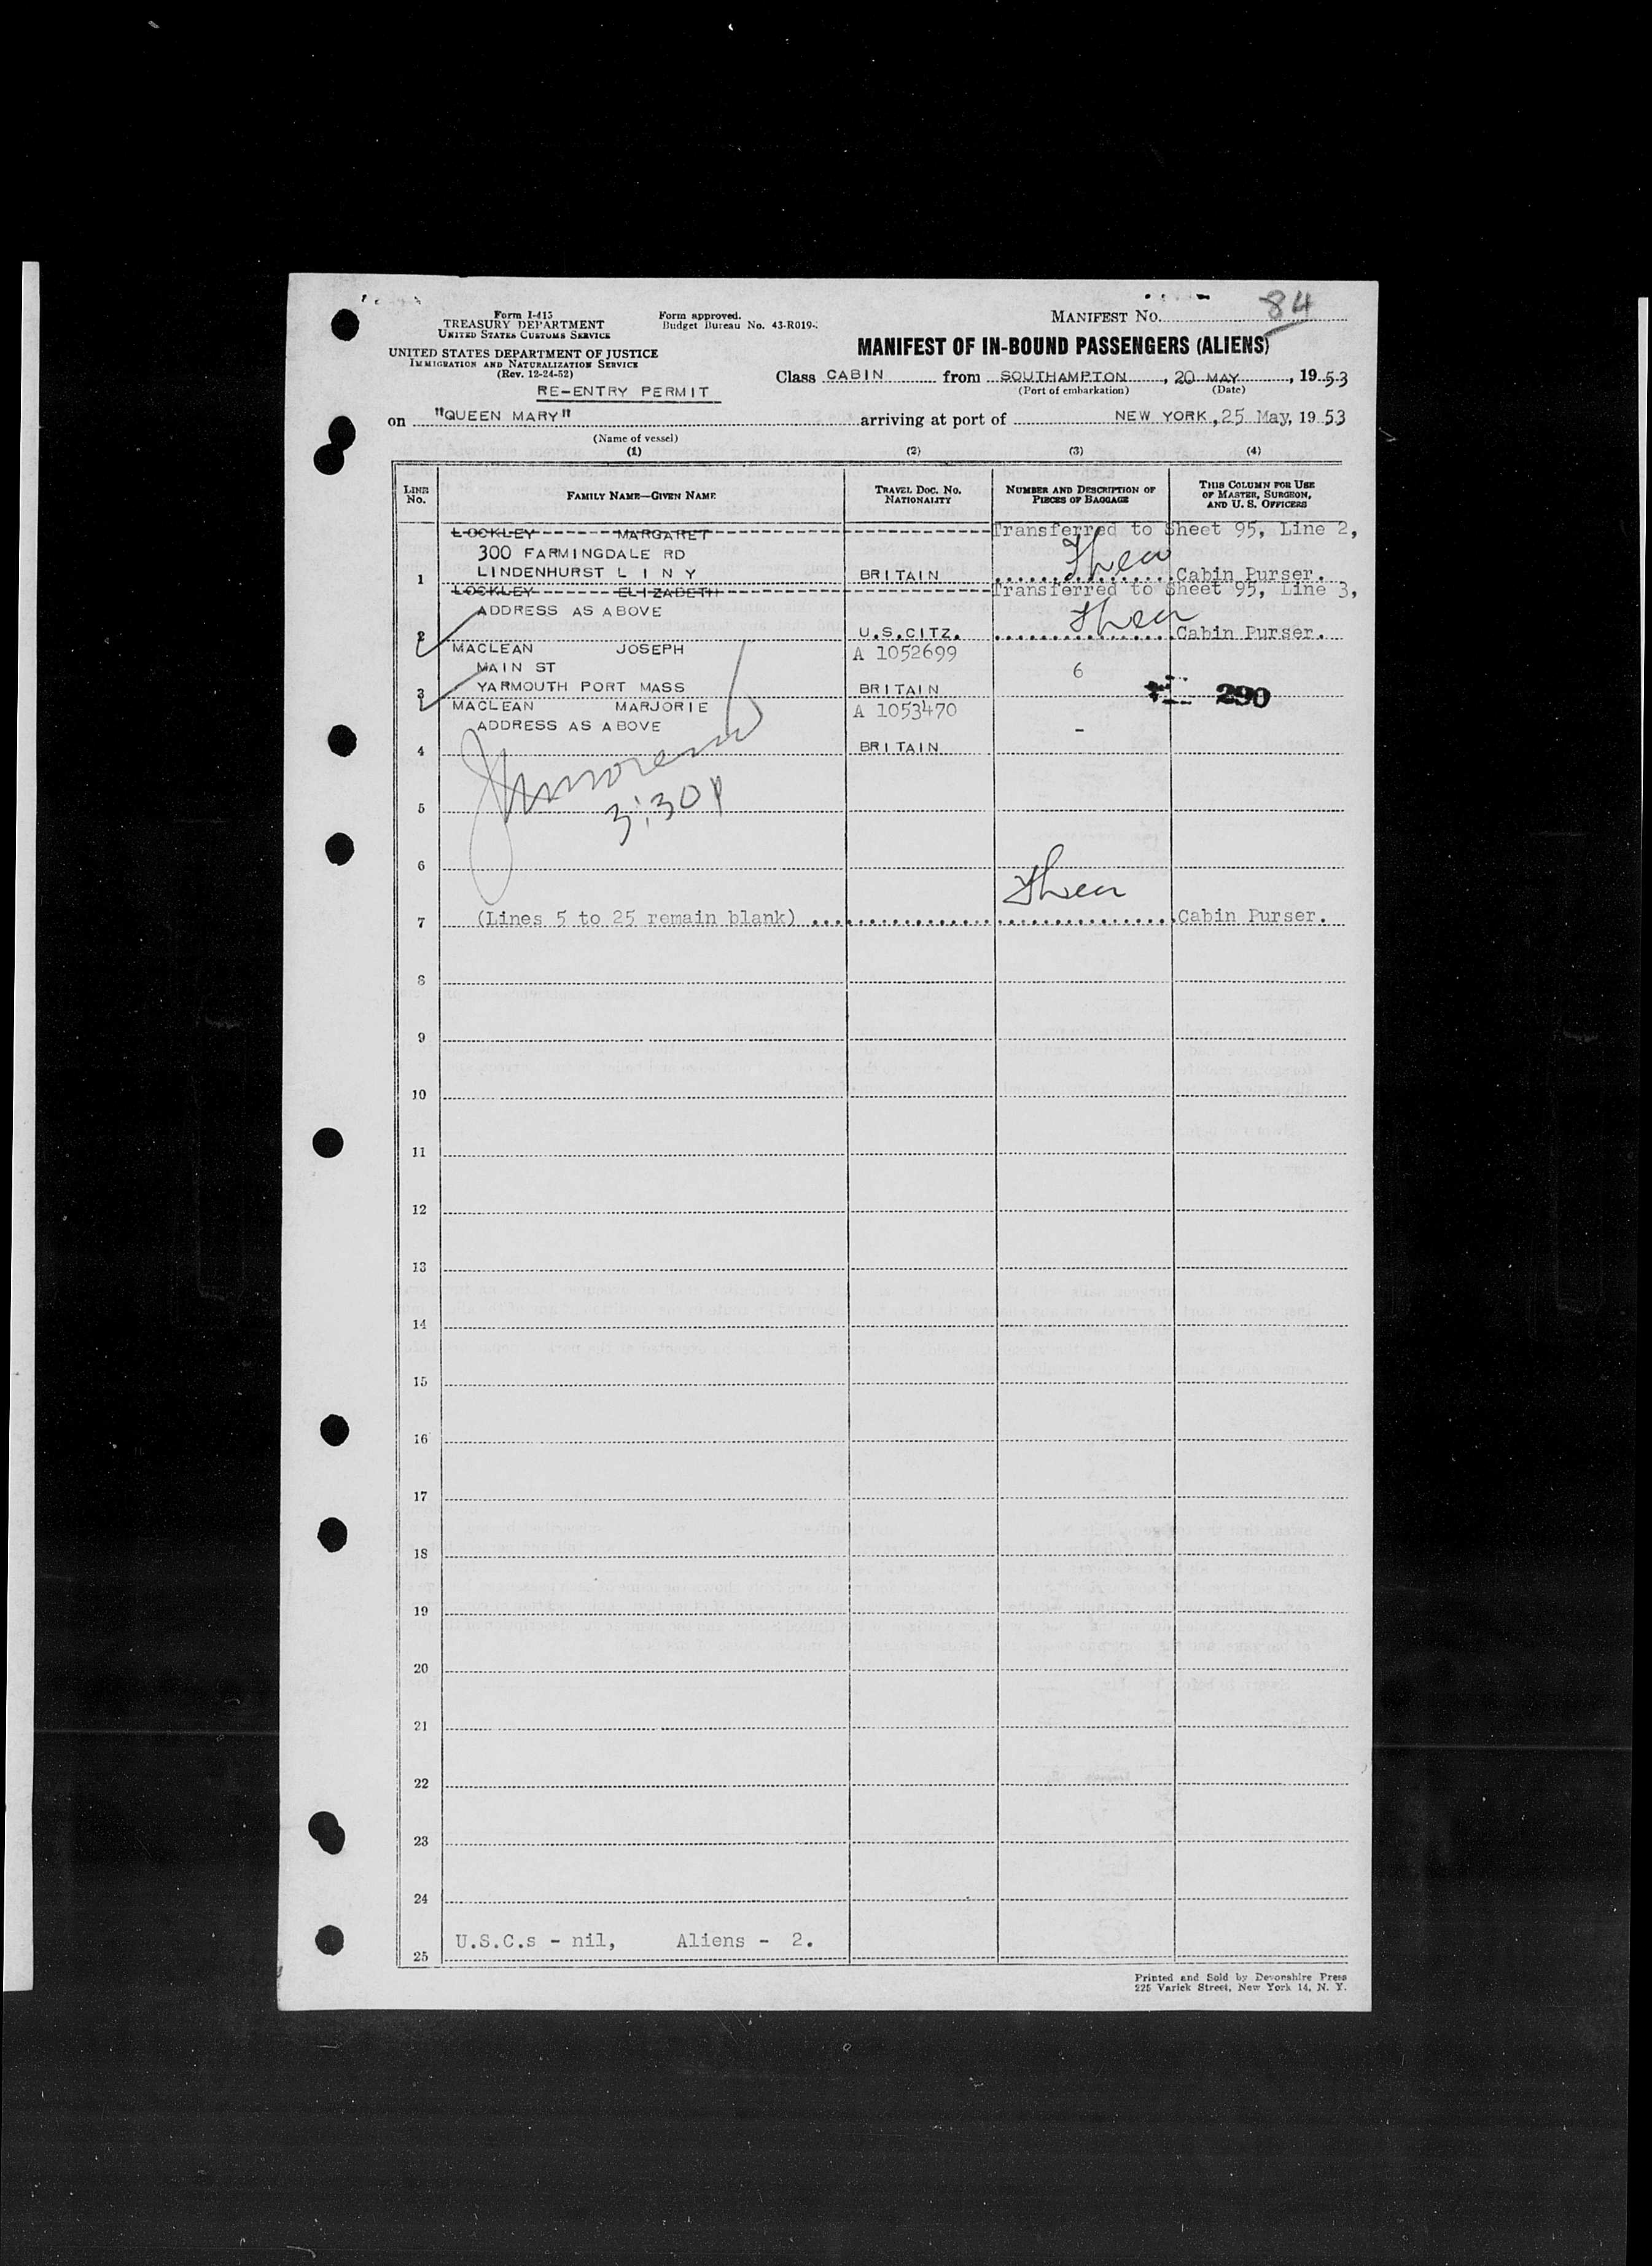 84
Form I-415 Form approved. MANIFEST NO.
TREASURY DEPARTMENT Budget Bureau No. 43-R019-
UNITED STATES CUSTOMS SERVICE
UNITED STATES DEPARTMENT OF JUSTICE MANIFEST OF IN-BOUND PASSENGERS (ALIENS)
IMMIGRATION AND NATURALIZATION SERVICE
(Rev. 12-24-52) Class CABIN from SOUTHAMPTON, 20 MAY, 1953
RE-ENTRY PERMIT (Port of embarkation) (Date)
on "QUEEN MARY" arriving at port of NEW YORK, 25 May, 1953
(Name of vessel)
(1) (2) (3) (4)
LINE NO. FAMILY NAME—GIVEN NAME TRAVEL DOC. NO. NATIONALITY NUMBER AND DESCRIPTION OF PIECES OF BAGGAGE THIS COLUMN FOR USE OF MASTER, SURGEON, AND U. S. OFFICERS
LOCKLEY MARGARET Transferred to Sheet 95, Line 2,
300 FARMINGDALE RD
1 LINDENHURST L I N Y BRITAIN Cabin Purser.
LOCKLEY ELIZABETH Transferred to Sheet 95, Line 3,
ADDRESS AS ABOVE
2 U.S.CITZ. Cabin Purser.
MACLEAN JOSEPH A 1052699
MAIN ST 6
3 YARMOUTH PORT MASS BRITAIN 290
MACLEAN MARJORIE A 1053470
ADDRESS AS ABOVE -
4 BRITAIN
5 3:30P
6
7 (Lines 5 to 25 remain blank) Cabin Purser.
8
9
10
11
12
13
14
15
16
17
18
19
20
21
22
23
24
U.S.C.s - nil, Aliens - 2.
25
Printed and Sold by Devonshire Press
225 Varick Street, New York 14, N. Y.